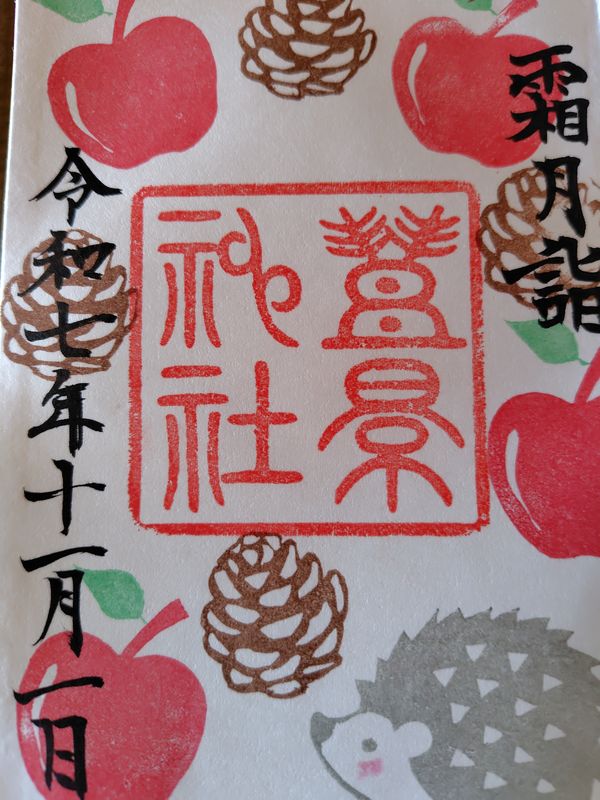 霜月詣
豊景
神社
令和七年十一月一日